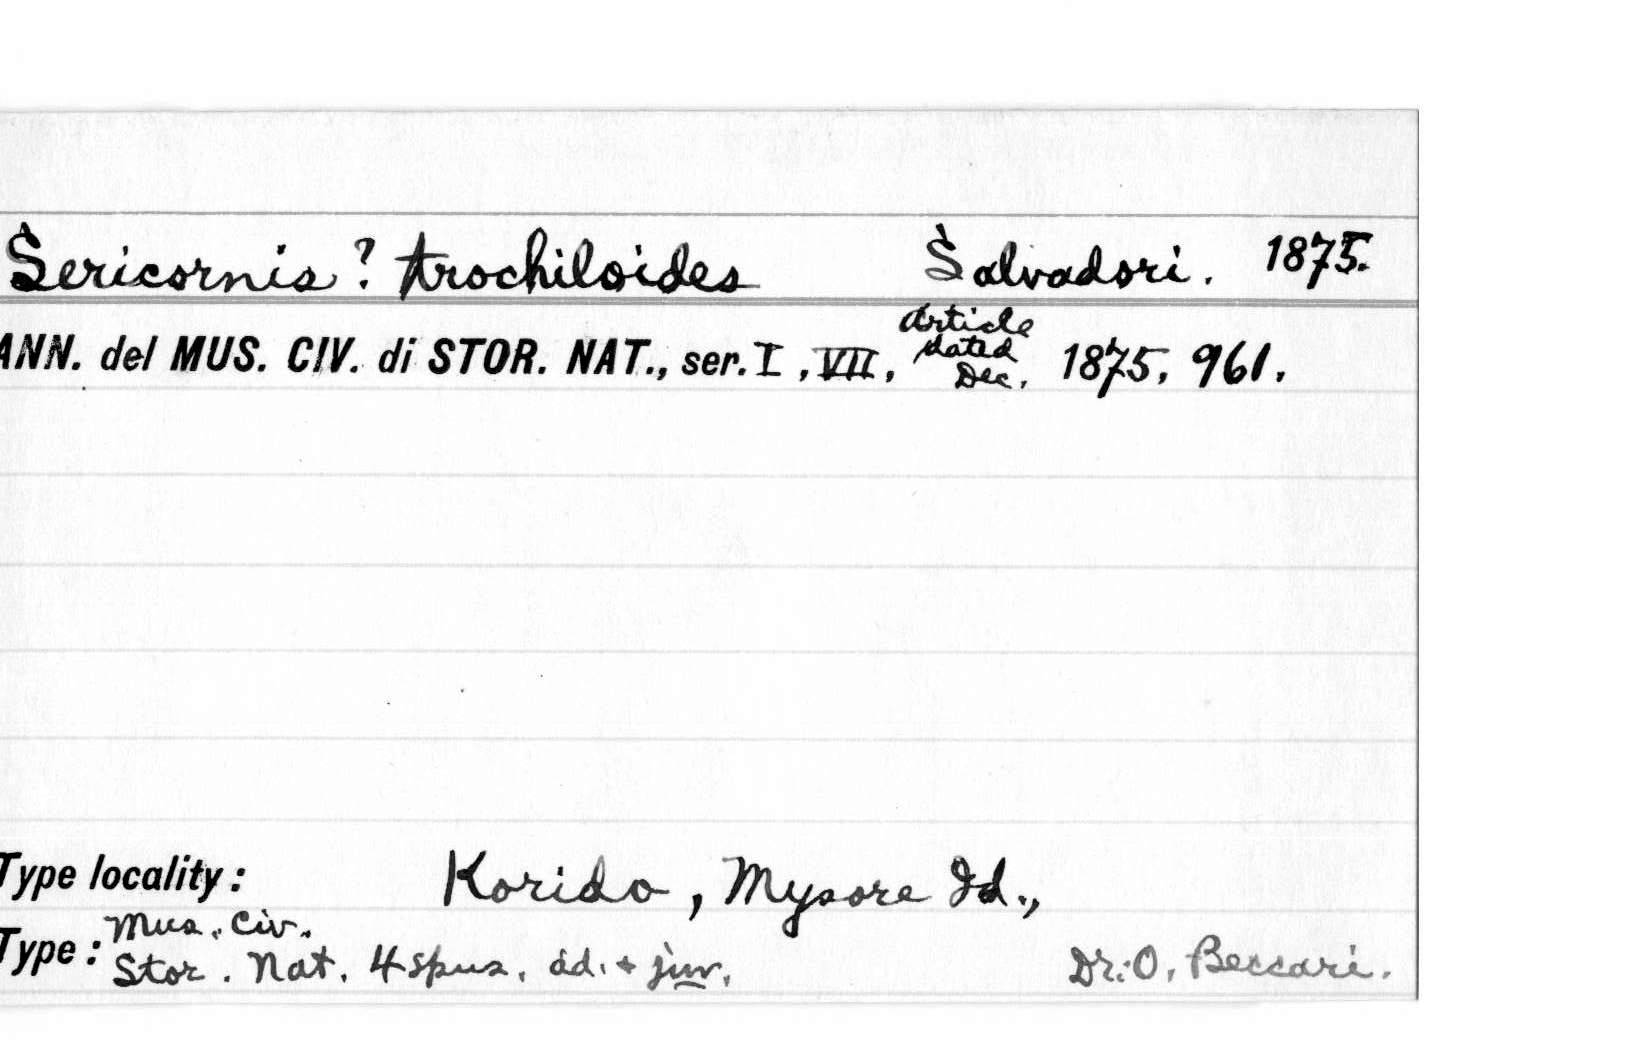 Sericornis ? trochiloides Salvadori. 1875.
ANN. del MUS. CIV. di STOR. NAT., ser. I, VII, Article dated Dec. 1875, 961.
Type locality: Korido, Mysore Id.,
Type: Mus. Civ.
Stor. Nat. 4 spns. ad. + juv. Dr. O. Beccari.